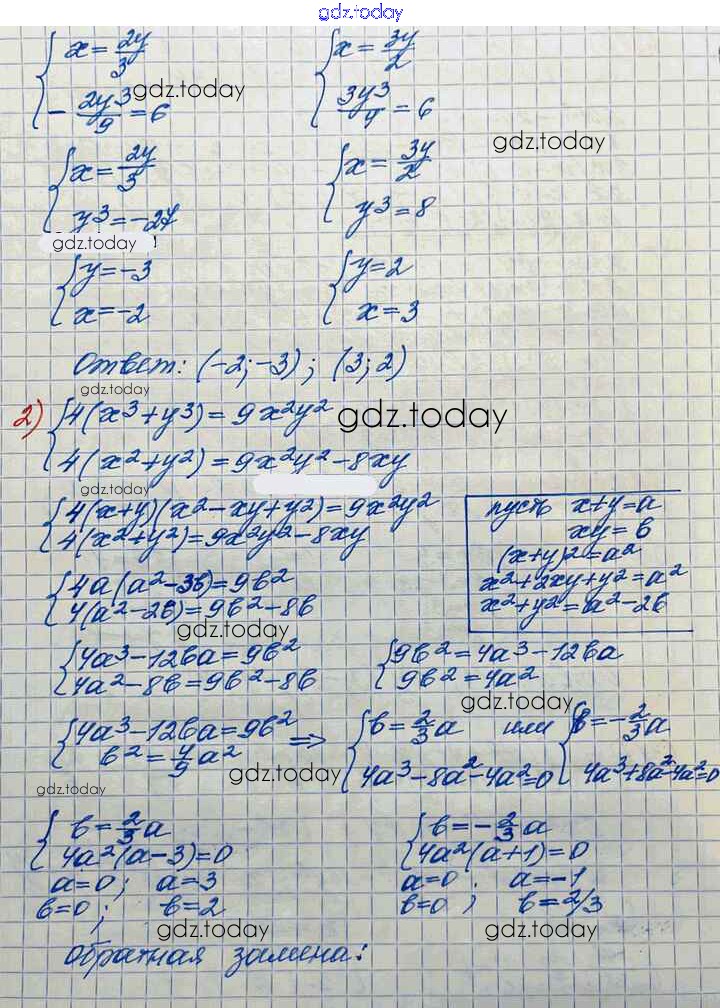 gdz.today
{ x = 2y/3 { x = 3y/2
{ - 2y³/9 = 6 gdz.today { 3y³/4 = 6
gdz.today
{ x = 2y/3 { x = 3y/2
{ y³ = -27 { y³ = 8
gdz.today
{ y = -3 { y = 2
{ x = -2 { x = 3
Ответ: (-2; -3); (3; 2)
gdz.today
2) { 4(x³+y³) = 9x²y² gdz.today
{ 4(x²+y²) = 9x²y² - 8xy
gdz.today
{ 4(x+y)(x²-xy+y²) = 9x²y²
{ 4(x²+y²) = 9x²y² - 8xy
пусть x+y=a
xy=b
(x+y)²=a²
x²+2xy+y²=a²
x²+y²=a²-2b
{ 4a(a²-3b) = 9b²
{ 4(a²-2b) = 9b²-8b
gdz.today
{ 4a³-12ba = 9b² { 9b² = 4a³-12ba
{ 4a²-8b = 9b²-8b { 9b² = 4a²
gdz.today
{ 4a³-12ba = 9b² ⇒ { b = 2/3 a или { b = -2/3 a
{ b² = 4/9 a² { 4a³-8a²-4a²=0 { 4a³+8a²-4a²=0
gdz.today
gdz.today
{ b = 2/3 a { b = -2/3 a
{ 4a²(a-3)=0 { 4a²(a+1)=0
a=0; a=3 a=0; a=-1
b=0; b=2 b=0; b=2/3
gdz.today gdz.today
обратная замена: